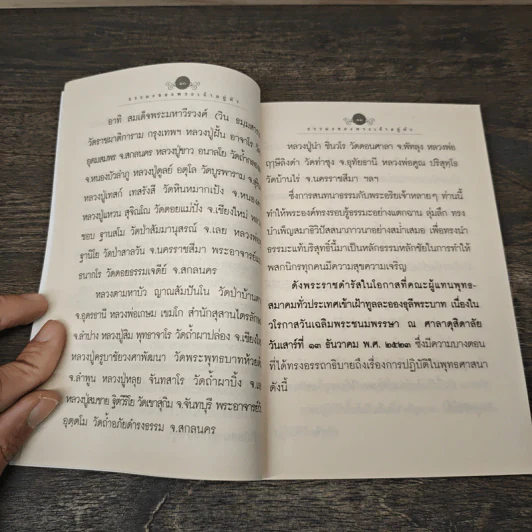 ธรรมะของพระเจ้าอยู่หัว
อาทิ สมเด็จพระมหาวีรวงศ์ (วิน ธมฺมสาร
วัดราชผาติการาม กรุงเทพฯ หลวงปู่ฝั้น อาจาโร วัด
อุดมสมพร จ.สกลนคร หลวงปู่ขาว อนาลโย วัดถ้ำกล
จ.หนองบัวลำภู หลวงปู่ดูลย์ อตุโล วัดบูรพาราม จ.สุ
หลวงปู่เทสก์ เทสรังสี วัดหินหมากเป้ง จ.หนอง
หลวงปู่แหวน สุจิณโณ วัดดอยแม่ปั๋ง จ.เชียงใหม่ หล
ชอบ ฐานสโม วัดป่าสัมมานุสรณ์ จ.เลย หลวงพ่อ
ฐานิโย วัดป่าสาลวัน จ.นครราชสีมา พระอาจารย์
ธนากโร วัดดอยธรรมเจดีย์ จ.สกลนคร
หลวงตามหาบัว ญาณสัมปันโน วัดป่าบ้านตา
จ.อุดรธานี หลวงพ่อเกษม เขมโก สำนักสุสานไตรลักษ
จ.ลำปาง หลวงปู่สิม พุทธาจาโร วัดถ้ำผาปล่อง จ.เชียงให
หลวงปู่ครูบาชัยวงศาพัฒนา วัดพระพุทธบาทห้วยต้
จ.ลำพูน หลวงปู่หลุย จันทสาโร วัดถ้ำผาบิ้ง จ.เล
หลวงปู่สมชาย ฐิตวิริโย วัดเขาสุกิม จ.จันทบุรี พระอาจารย์
อุตฺตโม วัดถ้ำอภัยดำรงธรรม จ.สกลนคร
ธรรมะของพระเจ้าอยู่หัว
หลวงปู่นำ ชินวโร วัดดอนศาลา จ.พัทลุง หลวงพ่อ
ฤาษีลิงดำ วัดท่าซุง จ.อุทัยธานี หลวงพ่อคูณ ปริสุทฺโธ
วัดบ้านไร่ จ.นครราชสีมา ฯลฯ
ซึ่งการสนทนาธรรมกับพระอริยเจ้าหลายๆ ท่านนี้
ทำให้พระองค์ทรงรอบรู้ธรรมะอย่างแตกฉาน ลุ่มลึก ทรง
บำเพ็ญสมาธิวิปัสสนาภาวนาอย่างสม่ำเสมอ เพื่อทรงนำ
ธรรมะแท้บริสุทธิ์นี้มาเป็นหลักธรรมหลักชัยในการทำให้
พสกนิกรทุกคนมีความสุขความเจริญ
ดังพระราชดำรัสในโอกาสที่คณะผู้แทนพุทธ-
สมาคมทั่วประเทศเข้าเฝ้าทูลละอองธุลีพระบาท เนื่องใน
วโรกาสวันเฉลิมพระชนมพรรษา ณ ศาลาดุสิดาลัย
วันเสาร์ที่ ๑๓ ธันวาคม พ.ศ. ๒๕๒๓ ซึ่งมีความบางตอน
ที่ได้ทรงอรรถาธิบายถึงเรื่องการปฏิบัติในพุทธศาสนา
ดังนี้